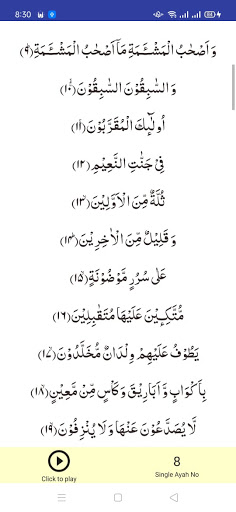 8:30
وَاَصْحٰبُ الْمَشْـَٔمَةِ مَاۤ اَصْحٰبُ الْمَشْـَٔمَةِ(۹)
وَ السّٰبِقُوْنَ السّٰبِقُوْنَ(۱۰)
اُولٰٓىٕكَ الْمُقَرَّبُوْنَ(۱۱)
فِیْ جَنّٰتِ النَّعِیْمِ(۱۲)
ثُلَّةٌ مِّنَ الْاَوَّلِیْنَ(۱۳)
وَ قَلِیْلٌ مِّنَ الْاٰخِرِیْنَ(۱۴)
عَلٰى سُرُرٍ مَّوْضُوْنَةٍ(۱۵)
مُّتَّكِـٕیْنَ عَلَیْهَا مُتَقٰبِلِیْنَ(۱۶)
یَطُوْفُ عَلَیْهِمْ وِلْدَانٌ مُّخَلَّدُوْنَ(۱۷)
بِاَكْوَابٍ وَّ اَبَارِیْقَ وَ كَاْسٍ مِّنْ مَّعِیْنٍ(۱۸)
لَّا یُصَدَّعُوْنَ عَنْهَا وَ لَا یُنْزِفُوْنَ(۱۹)
Click to play
8
Single Ayah No